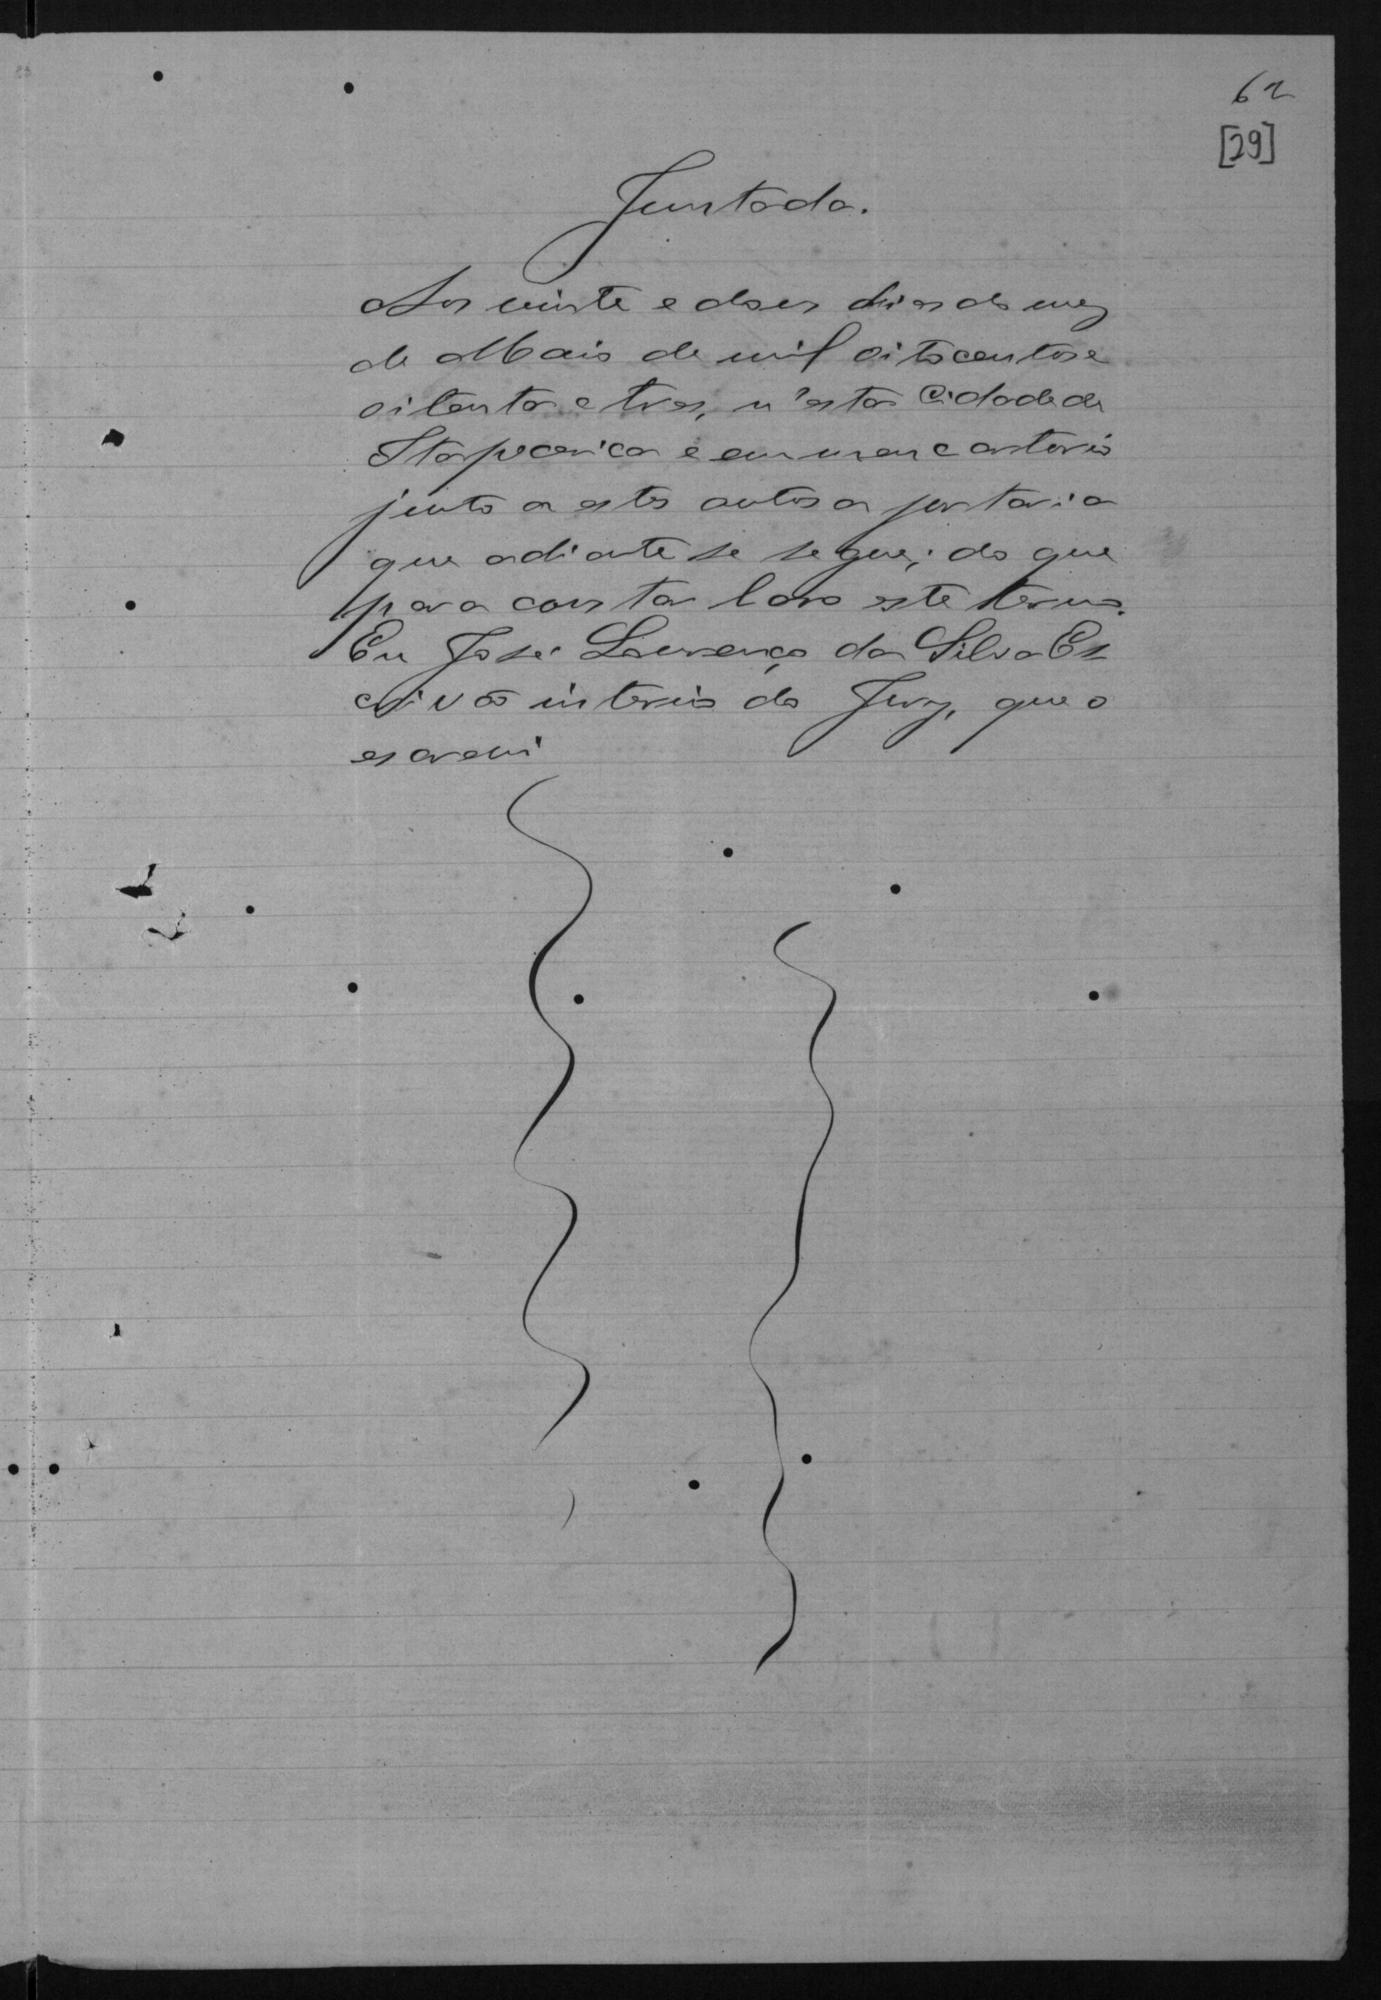 62
[29]
Juntada.
Aos vinte e dous dias do mez
de Maio de mil oitocentos e
oitenta e tres, n'esta Cidade de
Itapecerica e em meu cartorio
junto a estes autos a portaria
que adiante se segue; do que
para constar lavro este termo.
Eu José Lourenço da Silva Es
crivão interino do Jury, que o
escrevi